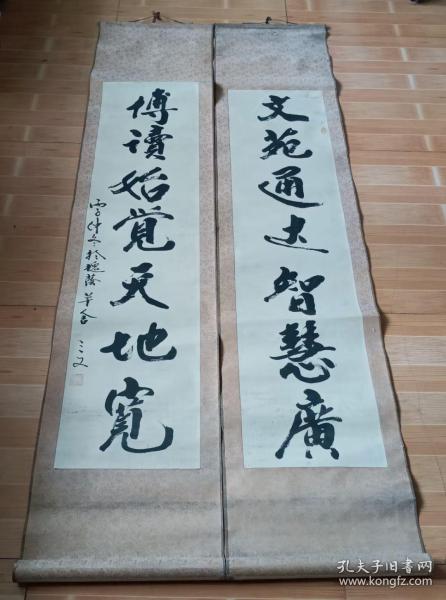 文苑通达智慧廣
博讀始覺天地寬
冬於 草舍
孔夫子旧书网
www.kongfz.com